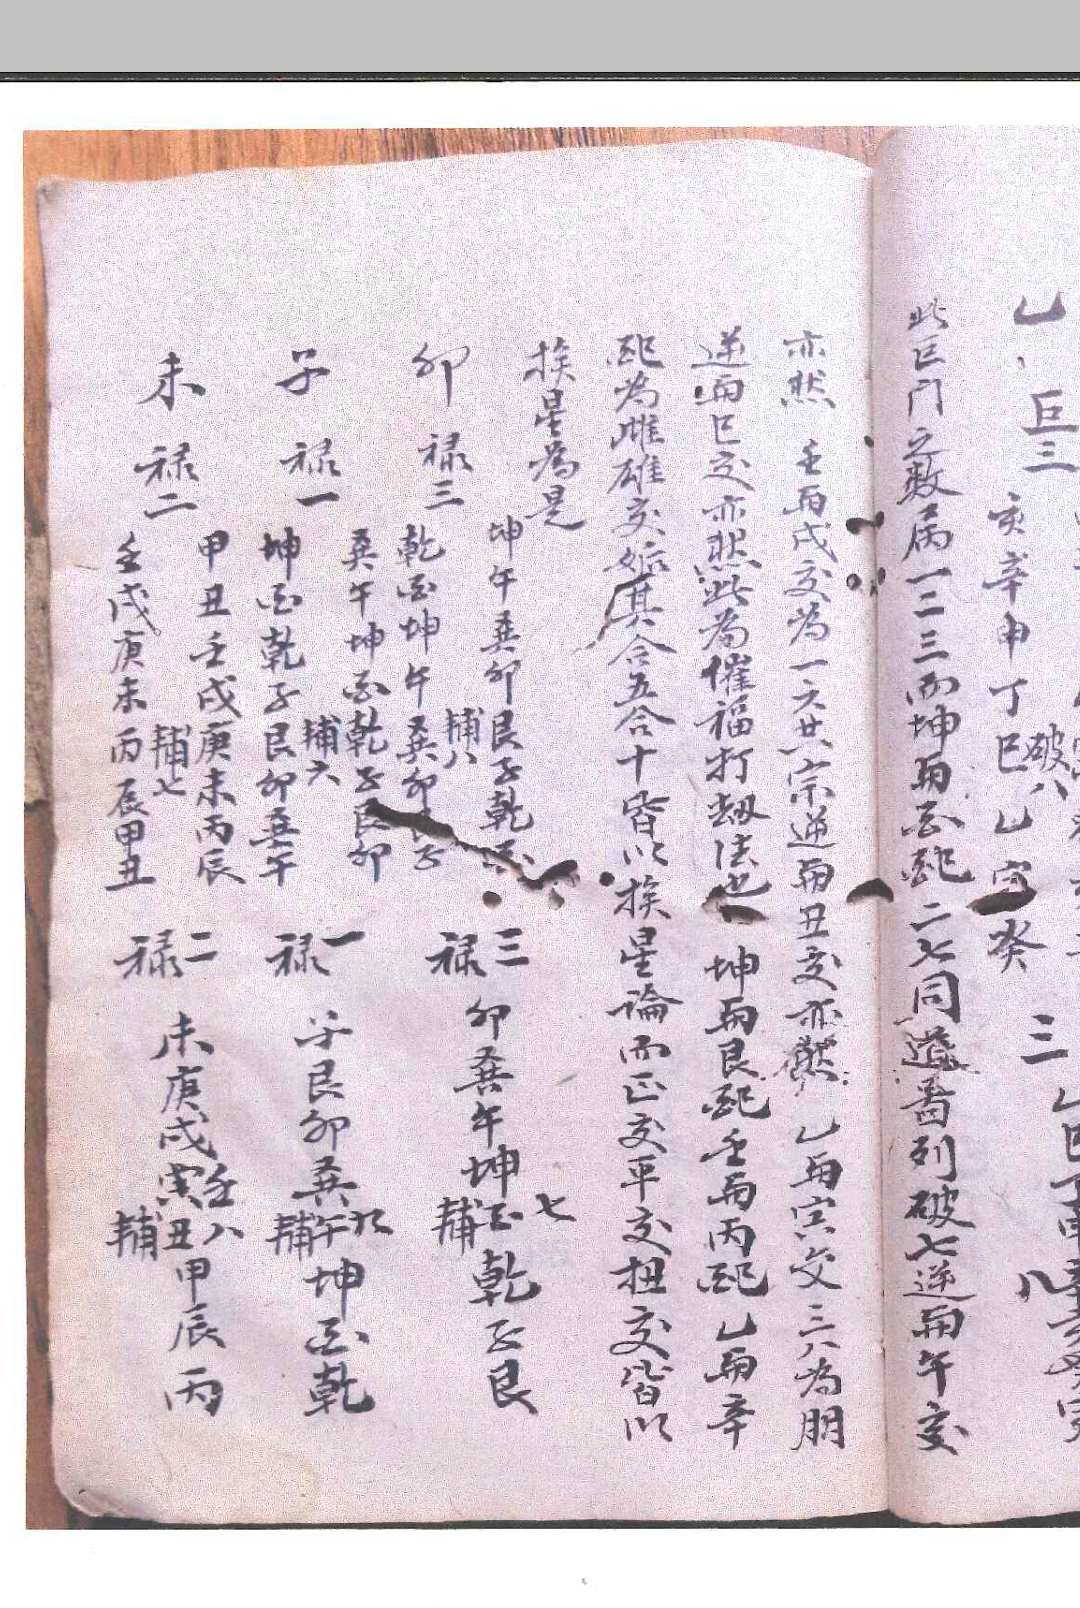 乙 巨三 亥辛申丁巳乙 癸
破八
三
八
此巨門之数属一二三而坤與酉配二七同道番列破七逆與午交
亦然 壬與戌交為一六共宗逆與丑交亦然 乙與 交三八為朋
逆與巳交亦然此為催福打劫法也 坤與艮配壬與丙配乙與辛
配為雌雄交姤其合五合十皆以挨星論而正交平交扭交皆以
挨星為是
卯 禄三
坤午巽卯艮子乾酉
輔八
乾酉坤午巽卯艮子
三禄
卯巽午坤酉乾子艮
七輔
子 禄一
巽午坤酉乾子艮卯
輔六
坤酉乾子艮卯巽午
一禄
子艮卯巽午坤酉乾
九輔
未 禄二
甲丑壬戌庚未丙辰
輔七
壬戌庚未丙辰甲丑
二禄
未庚戌寅丑甲辰丙
壬
八輔